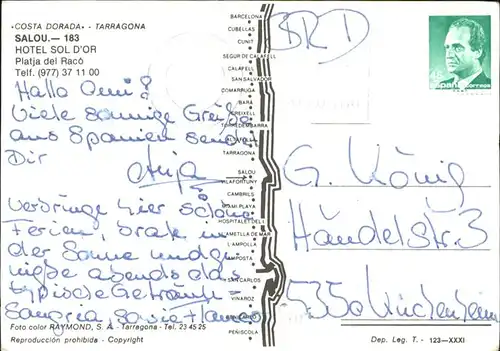 «COSTA DORADA» - TARRAGONA
SALOU.— 183
HOTEL SOL D'OR
Platja del Racó
Telf. (977) 37 11 00
Hallo Omi!
Viele sonnige Grüße
aus Spanien sendet
Dir
Anja
Verbringe hier schöne
Ferien, brate in
der Sonne und ge-
nieße abends das
typische Getränk -
Sangria, sowie
Foto color RAYMOND, S. A. - Tarragona - Tel. 23 45 25
Reproducción prohibida - Copyright
BARCELONA
CUBELLAS
CUNIT
SEGUR DE CALAFELL
CALAFELL
SAN SALVADOR
COMARRUGA
BARA
CREIXELL
TORREDEMBARRA
ALTAFULLA
TARRAGONA
SALOU
VILAFORTUNY
CAMBRILS
MIAMI PLAYA
HOSPITALET DEL I
AMETLLA DE MAR
L'AMPOLLA
AMPOSTA
SAN CARLOS
VINAROZ
PEÑISCOLA
BRD
correos
G. König
Händelstr. 3
Dep. Leg. T. - 123—XXXI